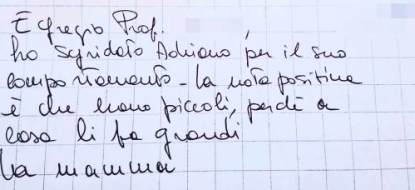 Egregio Prof.,
ho sgridato Adriano per il suo
comportamento - la nota positiva
è che erano piccoli, perché a
casa li fa grandi
La mamma